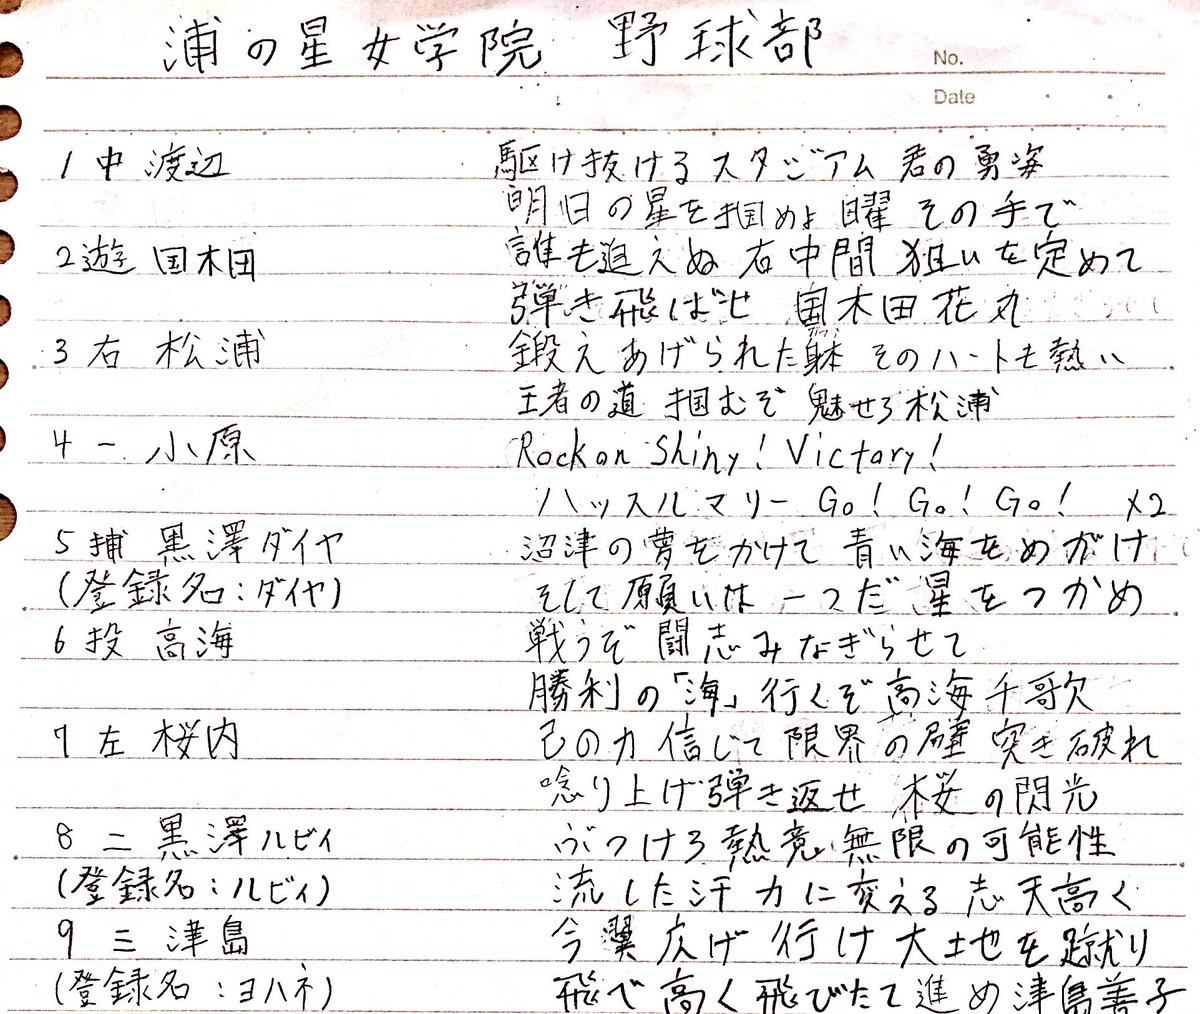 浦の星女学院 野球部
No.
Date
1 中 渡辺 駆け抜けるスタジアム 君の勇姿
明日の星を掴めよ 曜 その手で
2 遊 国木田 誰も追えぬ 右中間 狙いを定めて
弾き飛ばせ 国木田花丸
3 右 松浦 鍛えあげられた躰 そのハートも熱い
王者の道 掴むぞ 魅せろ松浦
4 一 小原 Rock on Shiny! Victory!
ハッスルマリー Go! Go! Go! ×2
5 捕 黒澤ダイヤ 沼津の夢をかけて 青い海をめがけ
(登録名:ダイヤ) そして願いは 一つだ 星をつかめ
6 投 高海 戦うぞ 闘志みなぎらせて
勝利の「海」行くぞ 高海千歌
7 左 桜内 己の力 信じて 限界の壁 突き破れ
唸り上げ弾き返せ 桜の閃光
8 二 黒澤ルビィ ぶつけろ熱意 無限の可能性
(登録名:ルビィ) 流した汗 力に変える 志 天高く
9 三 津島 今翼広げ 行け大地を蹴り
(登録名:ヨハネ) 飛べ高く飛びたて進め津島善子